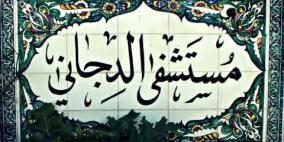 مُستَشفى الدجاني